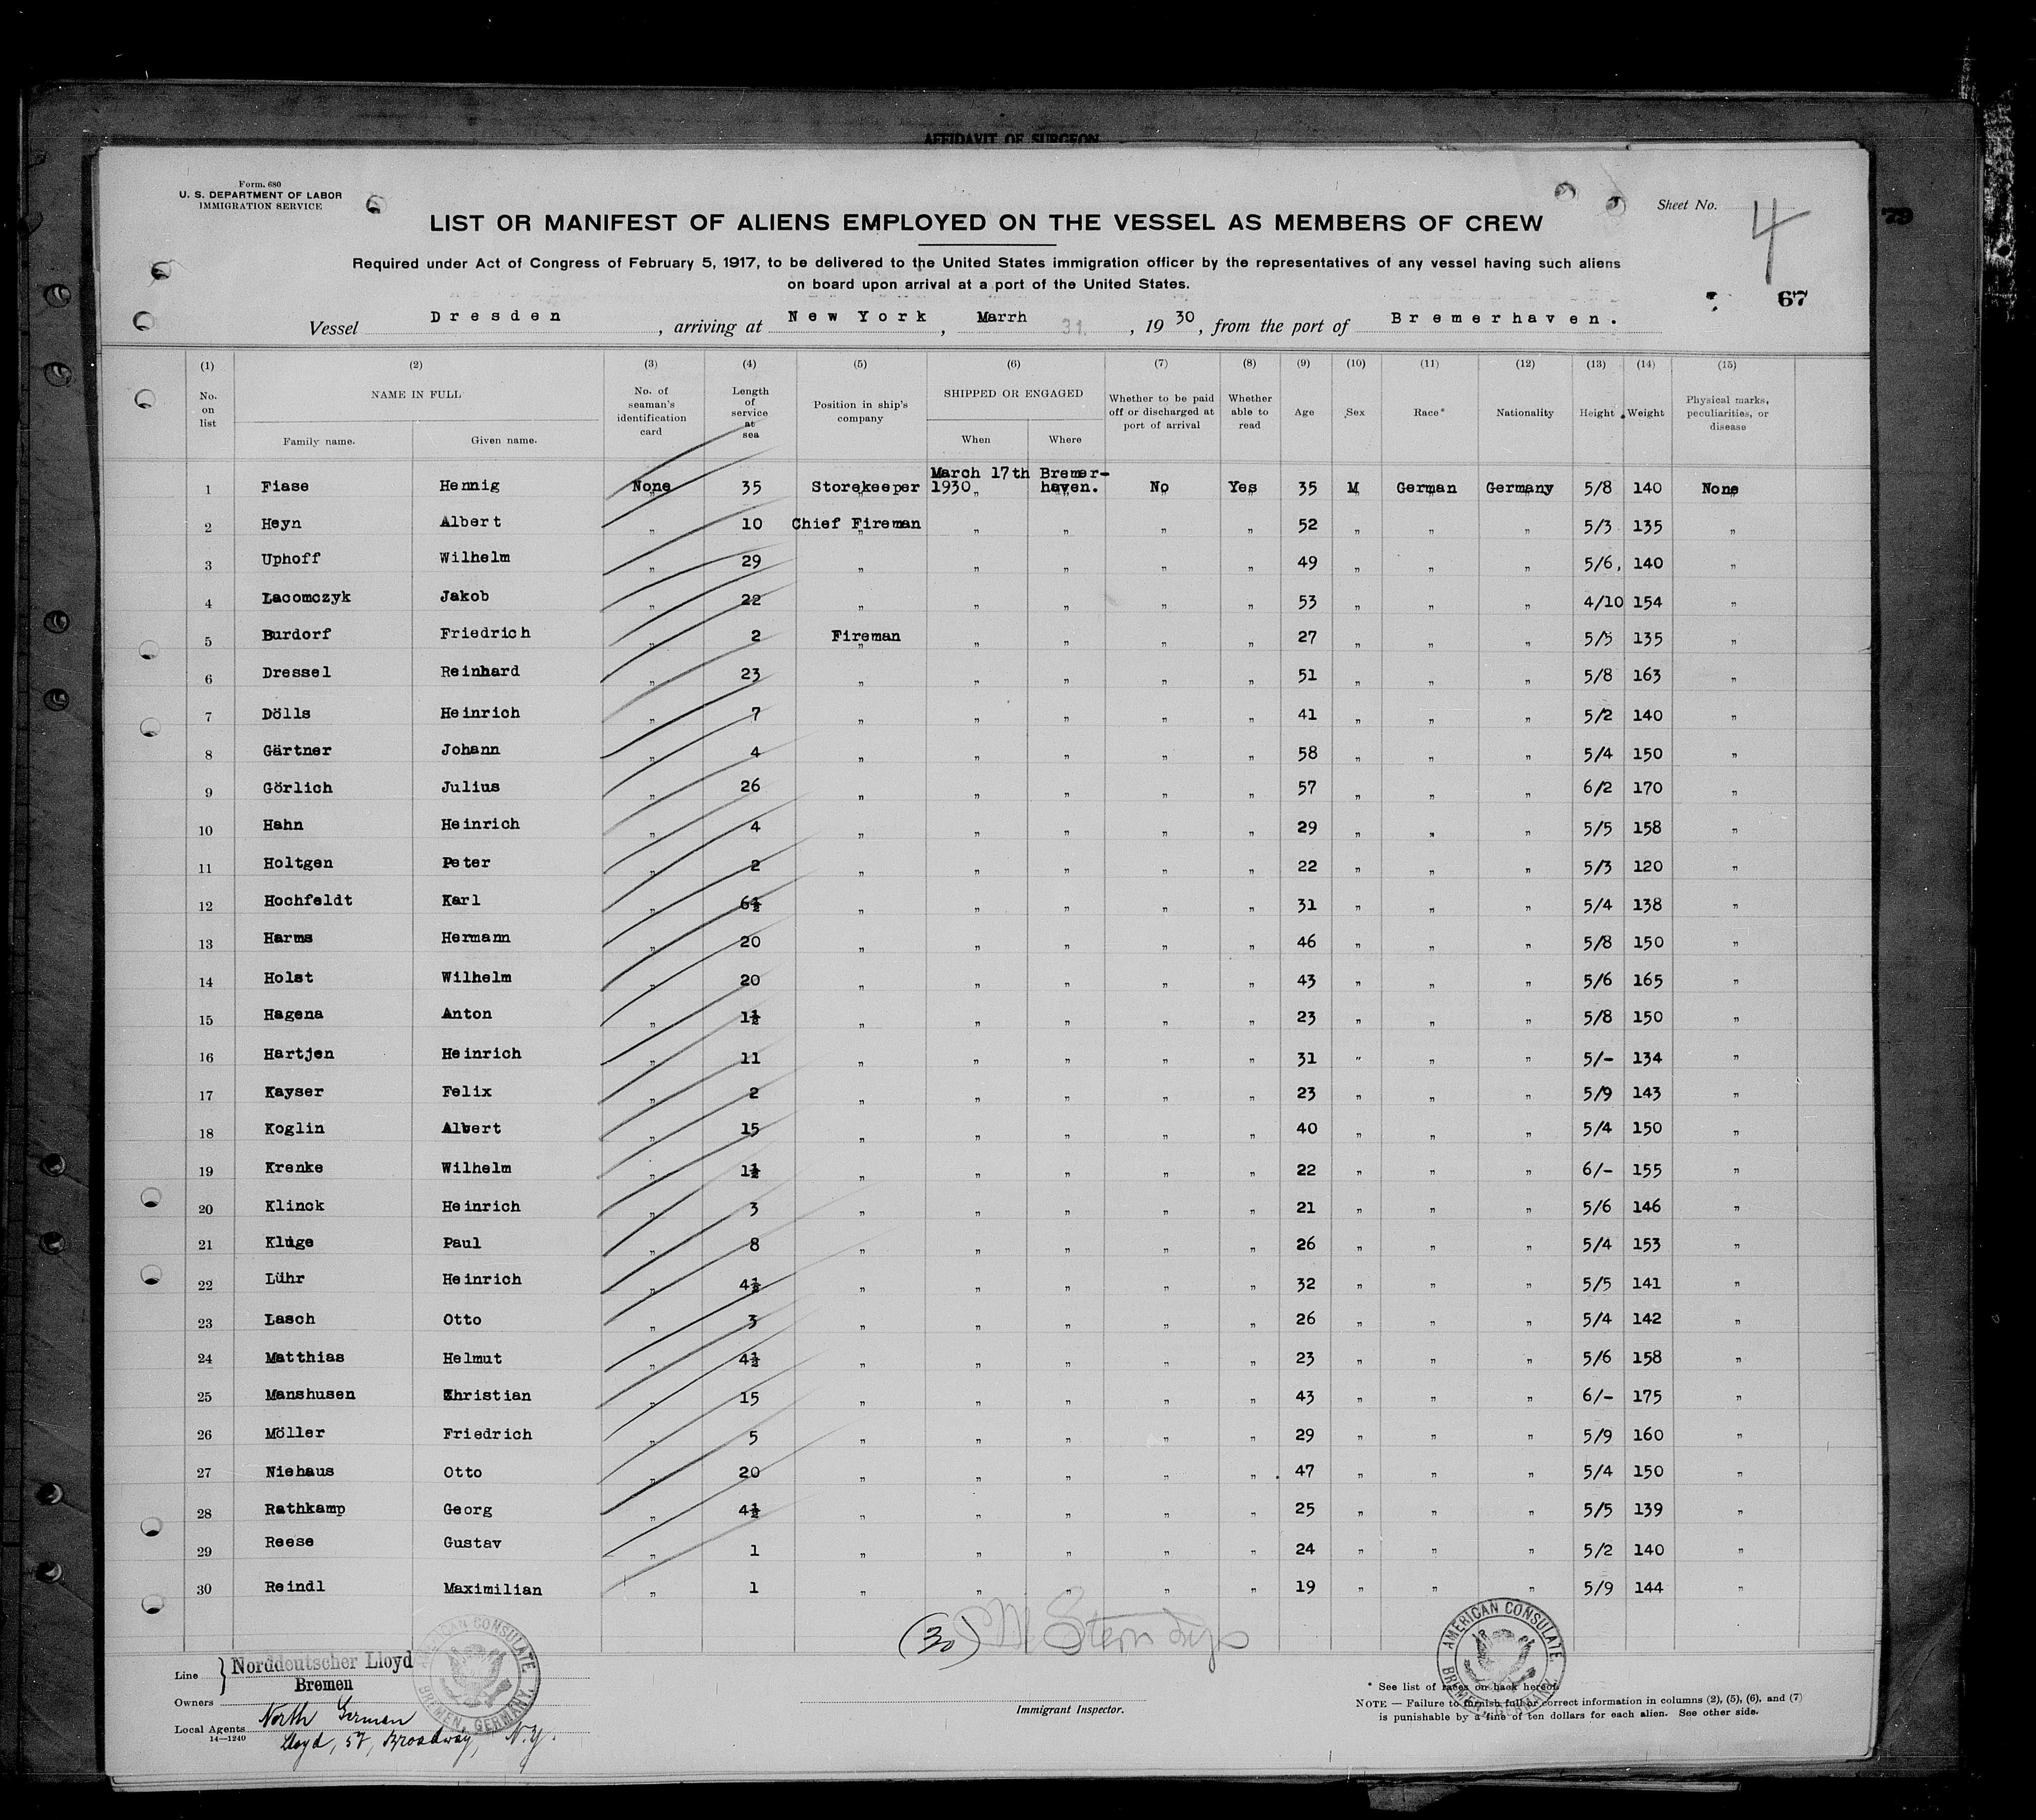 AFFIDAVIT OF SURGEON
Form. 680
U. S. DEPARTMENT OF LABOR
IMMIGRATION SERVICE
Sheet No. 4
79
LIST OR MANIFEST OF ALIENS EMPLOYED ON THE VESSEL AS MEMBERS OF CREW
Required under Act of Congress of February 5, 1917, to be delivered to the United States immigration officer by the representatives of any vessel having such aliens
on board upon arrival at a port of the United States.
67
Vessel Dresden, arriving at New York, Marrh 31, 1930, from the port of Bremerhaven.
(1) (2) (3) (4) (5) (6) (7) (8) (9) (10) (11) (12) (13) (14) (15)
No. on list NAME IN FULL Family name. Given name. No. of seaman's identification card Length of service at sea Position in ship's company SHIPPED OR ENGAGED When Where Whether to be paid off or discharged at port of arrival Whether able to read Age Sex Race* Nationality Height Weight Physical marks, peculiarities, or disease
1 Fiase Hennig None 35 Storekeeper March 17th 1930 Bremer-haven. No Yes 35 M German Germany 5/8 140 None
2 Heyn Albert " 10 Chief Fireman " " " " 52 " " " 5/3 135 "
3 Uphoff Wilhelm " 29 " " " " " 49 " " " 5/6, 140 "
4 Lacomczyk Jakob " 22 " " " " " 53 " " " 4/10 154 "
5 Burdorf Friedrich " 2 Fireman " " " " 27 " " " 5/5 135 "
6 Dressel Reinhard " 23 " " " " " 51 " " " 5/8 163 "
7 Dölls Heinrich " 7 " " " " " 41 " " " 5/2 140 "
8 Gärtner Johann " 4 " " " " " 58 " " " 5/4 150 "
9 Görlich Julius " 26 " " " " " 57 " " " 6/2 170 "
10 Hahn Heinrich " 4 " " " " " 29 " " " 5/5 158 "
11 Holtgen Peter " 2 " " " " " 22 " " " 5/3 120 "
12 Hochfeldt Karl " 6½ " " " " " 31 " " " 5/4 138 "
13 Harms Hermann " 20 " " " " " 46 " " " 5/8 150 "
14 Holst Wilhelm " 20 " " " " " 43 " " " 5/6 165 "
15 Hagena Anton " 1½ " " " " " 23 " " " 5/8 150 "
16 Hartjen Heinrich " 11 " " " " " 31 " " " 5/- 134 "
17 Kayser Felix " 2 " " " " " 23 " " " 5/9 143 "
18 Koglin Albert " 15 " " " " " 40 " " " 5/4 150 "
19 Krenke Wilhelm " 1½ " " " " " 22 " " " 6/- 155 "
20 Klinck Heinrich " 3 " " " " " 21 " " " 5/6 146 "
21 Kluge Paul " 8 " " " " " 26 " " " 5/4 153 "
22 Lühr Heinrich " 4½ " " " " " 32 " " " 5/5 141 "
23 Lasch Otto " 3 " " " " " 26 " " " 5/4 142 "
24 Matthias Helmut " 4½ " " " " " 23 " " " 5/6 158 "
25 Manshusen Christian " 15 " " " " " 43 " " " 6/- 175 "
26 Möller Friedrich " 5 " " " " " 29 " " " 5/9 160 "
27 Niehaus Otto " 20 " " " " " 47 " " " 5/4 150 "
28 Rathkamp Georg " 4½ " " " " " 25 " " " 5/5 139 "
29 Reese Gustav " 1 " " " " " 24 " " " 5/2 140 "
30 Reindl Maximilian " 1 " " " " " 19 " " " 5/9 144 "
(30)
AMERICAN CONSULATE. BREMEN, GERMANY.
AMERICAN CONSULATE. BREMEN, GERMANY.
Line Norddeutscher Lloyd
Bremen
Owners
Local Agents North German
Lloyd, 57, Broadway, N.Y.
14—1240
Immigrant Inspector.
* See list of races on back hereof.
NOTE — Failure to furnish full or correct information in columns (2), (5), (6), and (7)
is punishable by a fine of ten dollars for each alien. See other side.